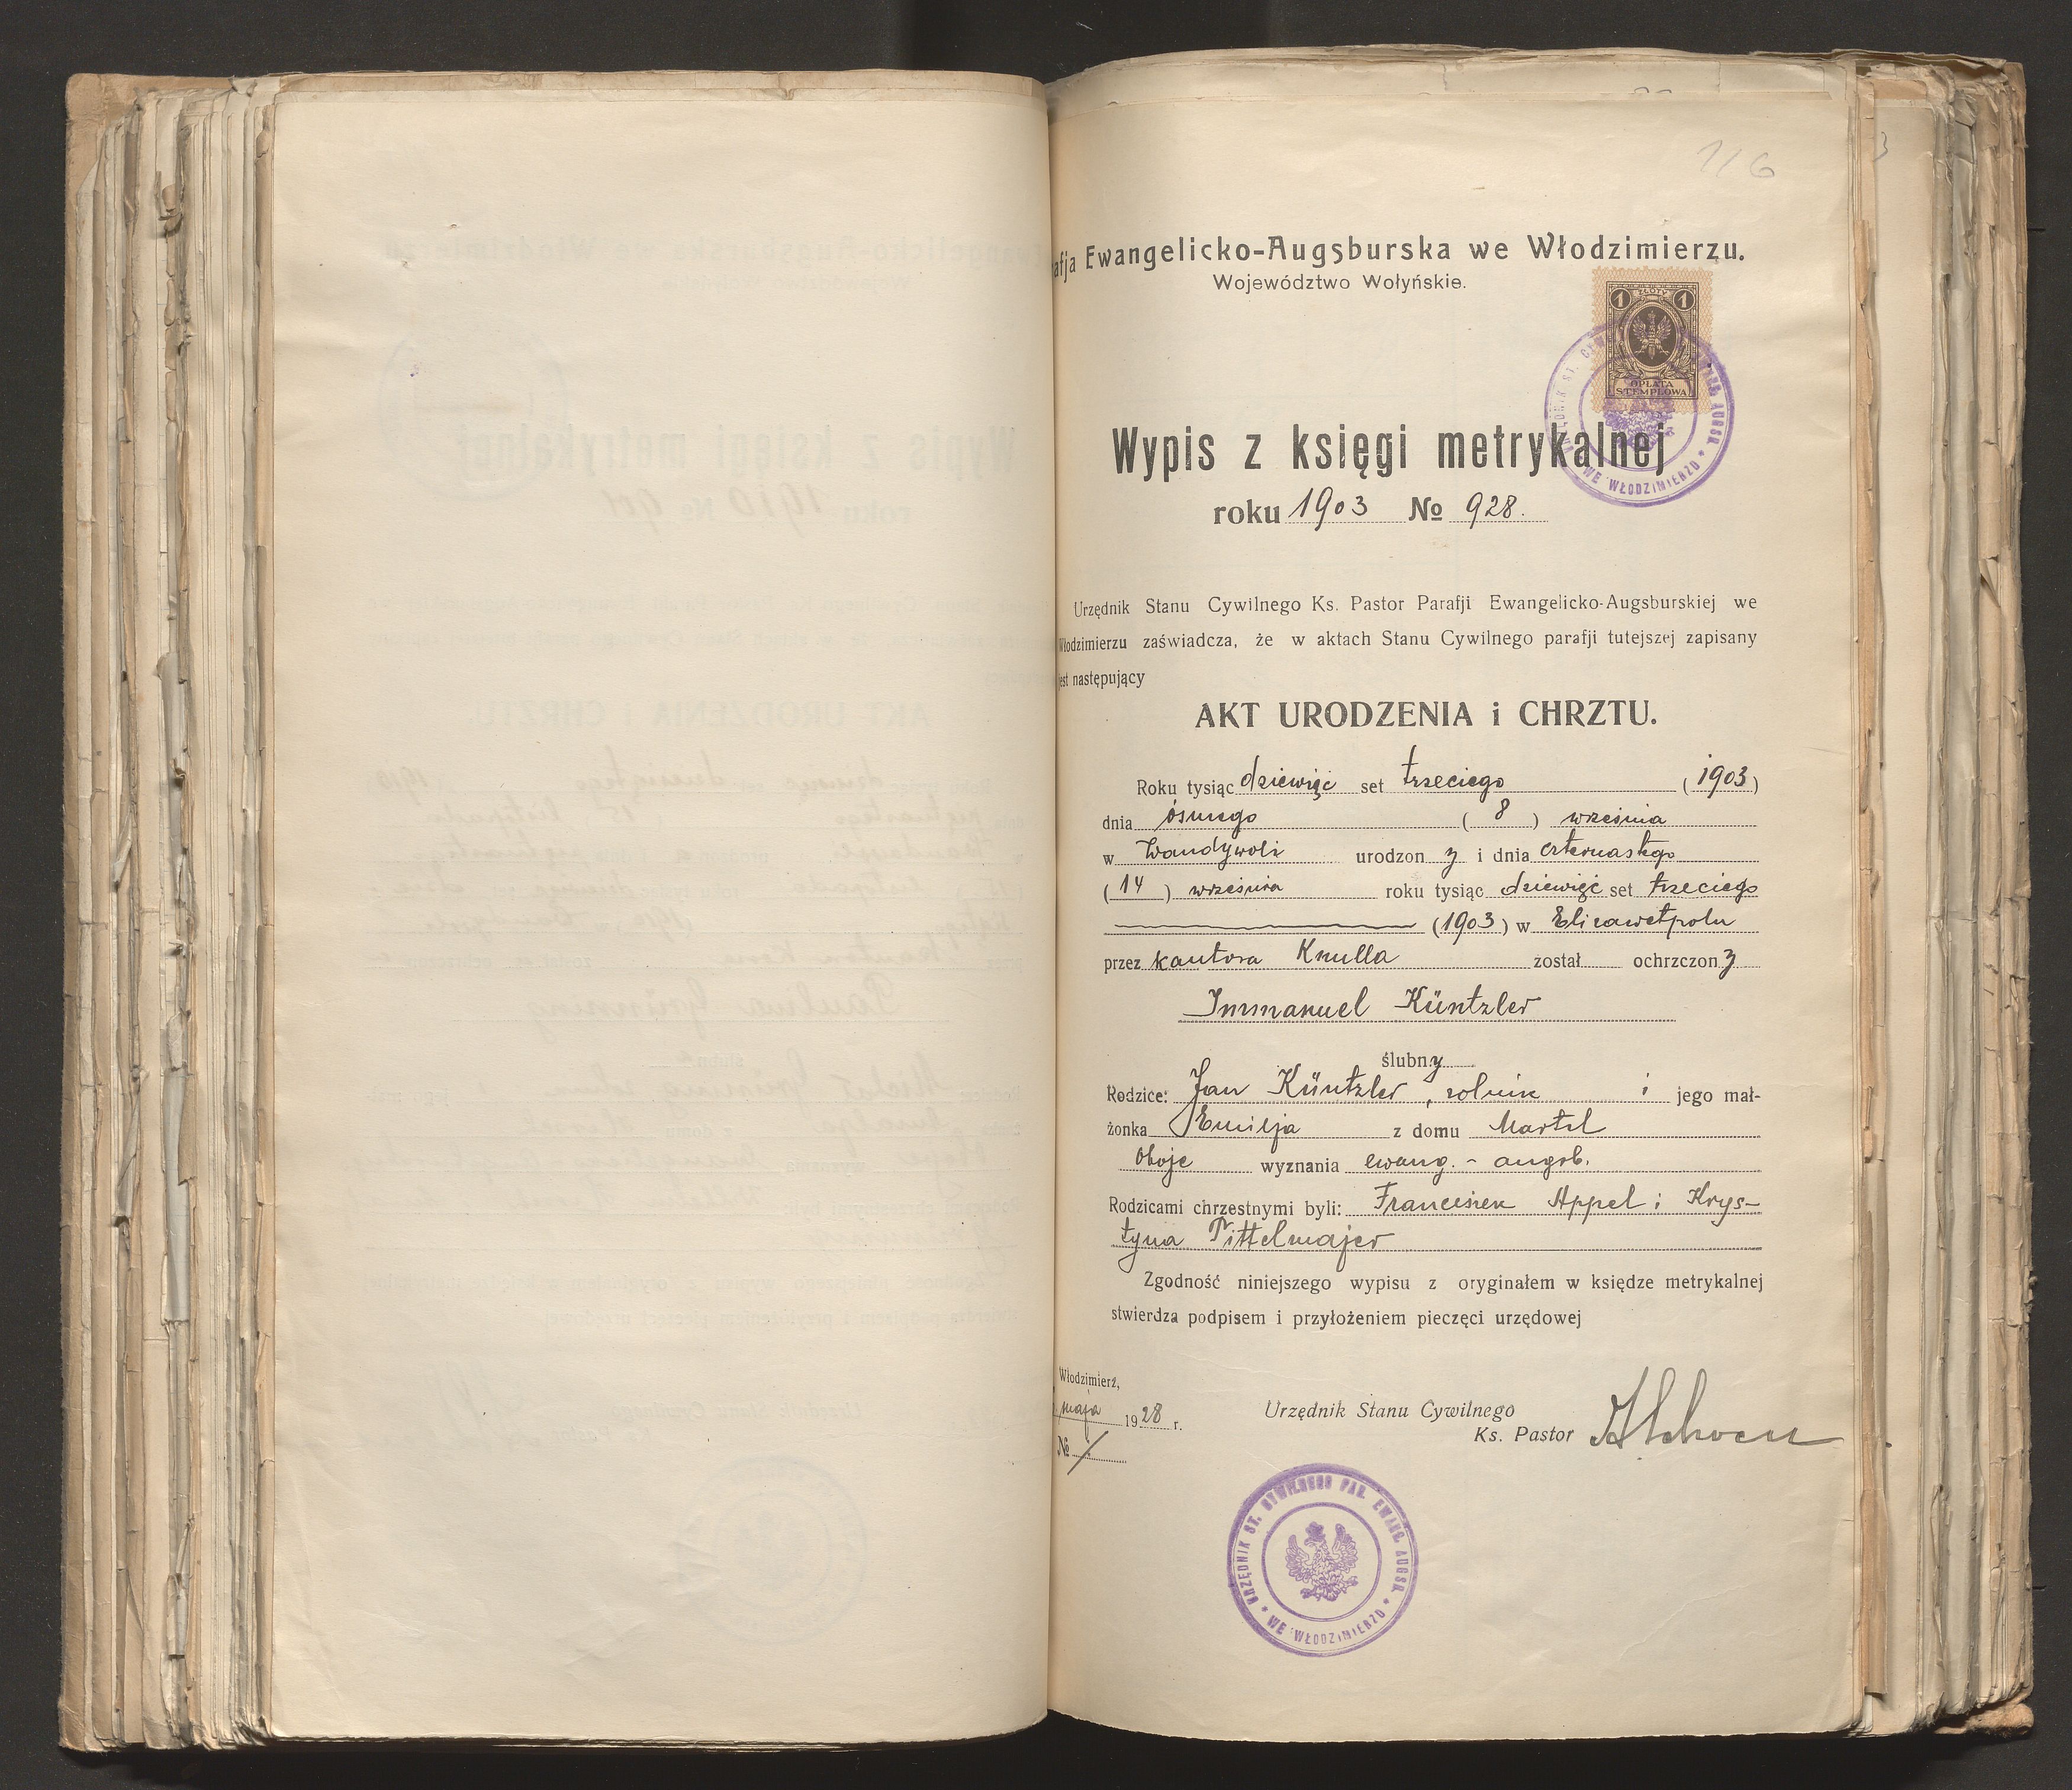 116
afja Ewangelicko-Augsburska we Włodzimierzu.
Województwo Wołyńskie.
1 ZŁOTY 1
OPŁATA
STEMPLOWA
WE WŁODZIMIERZU
Wypis z księgi metrykalnej
roku 1903 № 928.
Urzędnik Stanu Cywilnego Ks. Pastor Parafji Ewangelicko-Augsburskiej we
Włodzimierzu zaświadcza, że w aktach Stanu Cywilnego parafji tutejszej zapisany
jest następujący
AKT URODZENIA i CHRZTU.
Roku tysiąc dziewięć set trzeciego (1903)
dnia ósmego (8) września
w Wandywoli urodzony i dnia czternastego
(14) września roku tysiąc dziewięć set trzeciego
(1903) w Elizawetpolu
przez kantora Knulla został ochrzczony
Immanuel Küntzler
ślubny
Rodzice: Jan Küntzler, rolnik i jego mał-
żonka Emilja z domu Martel
oboje wyznania ewang. - augsb.
Rodzicami chrzestnymi byli: Franciszek Appel i Krys-
tyna Pittelmajer
Zgodność niniejszego wypisu z oryginałem w księdze metrykalnej
stwierdza podpisem i przyłożeniem pieczęci urzędowej
Włodzimierz,
maja 1928 r.
№ /
Urzędnik Stanu Cywilnego
Ks. Pastor
URZĘDNIK ST. CYWILNEGO PAR. EWANG. AUGSB. * WE WŁODZIMIERZU *